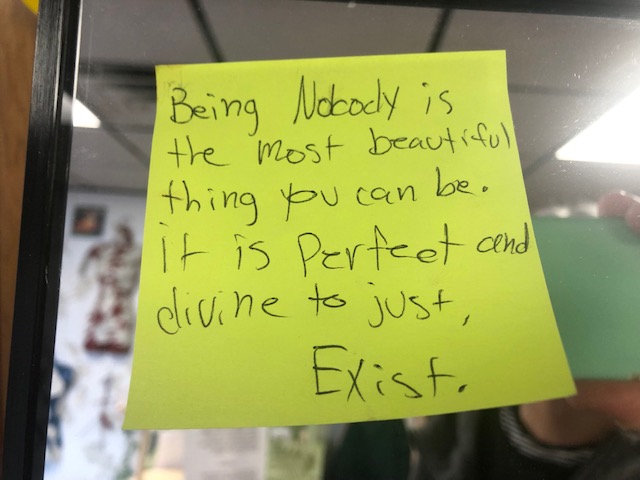 Being Nobody is
the most beautiful
thing you can be.
it is Perfect and
divine to just,
Exist.